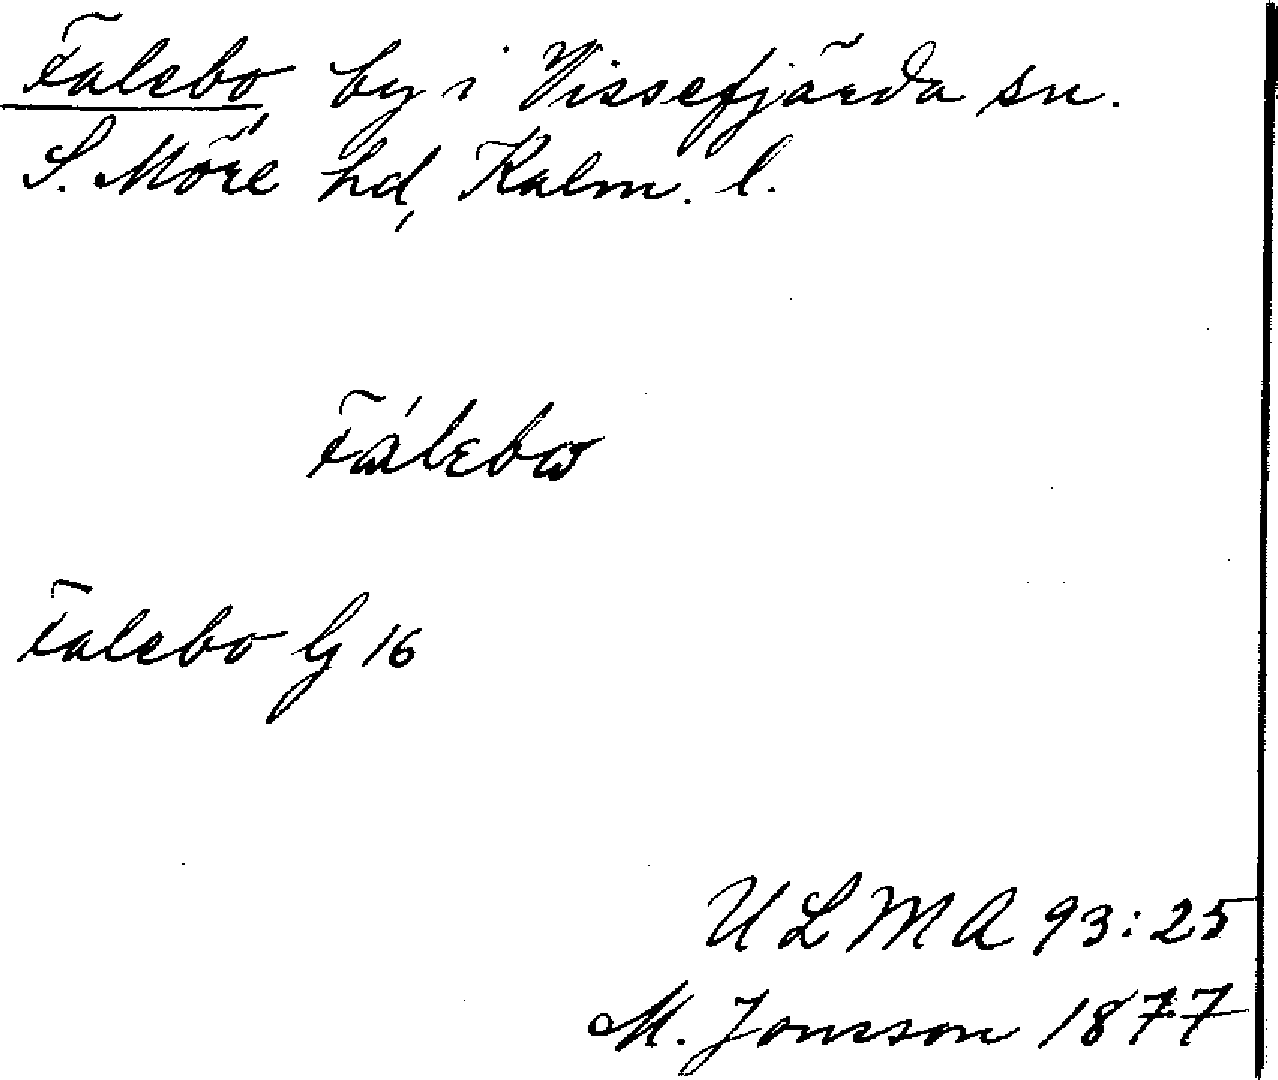 Falebo, by i Vissefjärda sn.
S. Möre hd, Kalm. l.
Fálebω
Falebo G 16
ULMA 93:25
M. Jonsson 1877